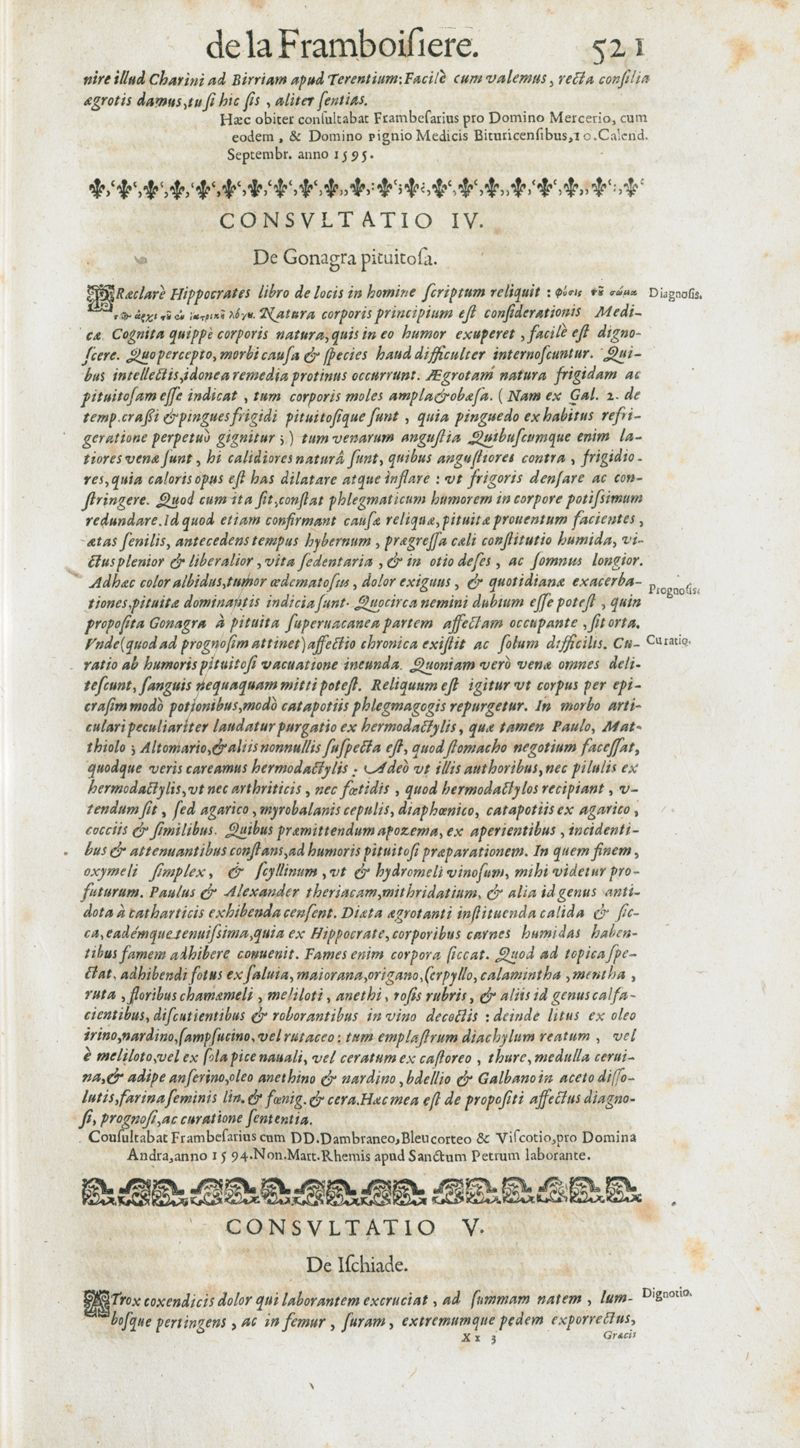 de la Framboiſiere. 521
nire illud Charini ad Birriam apud Terentium: Facilè cum valemus, recta conſilia
ægrotis damus, tu ſi hic ſis, aliter ſentias.
Hæc obiter conſultabat Frambeſarius pro Domino Mercerio, cum
eodem, & Domino Pignio Medicis Bituricenſibus, 10. Calend.
Septembr. anno 1595.
CONSVLTATIO IV.
De Gonagra pituitoſa.
PRæclarè Hippocrates libro de locis in homine ſcriptum reliquit : φύσις τȣ͂ σώμα Diagnoſis.
Natura corporis principium eſt conſiderationis Medi-
cæ. Cognita quippè corporis natura, quis in eo humor exuperet, facilè eſt digno-
ſcere. Quo percepto, morbi cauſa & ſpecies haud difficulter internoſcuntur. Qui-
bus intellectis, idonea remedia protinus occurrunt. Ægrotam natura frigidam ac
pituitoſam eſſe indicat, tum corporis moles ampla & obæſa. (Nam ex Gal. 2. de
temp. craſſi & pingues frigidi pituitoſique ſunt, quia pinguedo ex habitus refri-
geratione perpetuò gignitur;) tum venarum anguſtia. Quibuſcumque enim la-
tiores venæ ſunt, hi calidiores naturâ ſunt, quibus anguſtiores contra, frigidio-
res, quia caloris opus eſt has dilatare atque inflare : vt frigoris denſare ac con-
ſtringere. Quod cum ita ſit, conſtat phlegmaticum humorem in corpore potiſsimum
redundare. Id quod etiam confirmant cauſæ reliquæ, pituitæ prouentum facientes,
ætas ſenilis, antecedens tempus hybernum, prægreſſa cæli conſtitutio humida, vi-
ctus plenior & liberalior, vita ſedentaria, & in otio deſes, ac ſomnus longior.
Adhæc color albidus, tumor œdematoſus, dolor exiguus, & quotidianæ exacerba-
tiones, pituitæ dominantis indicia ſunt. Quocirca nemini dubium eſſe poteſt, quin Prognoſis.
propoſita Gonagra à pituita ſuperuacanea partem affectam occupante, ſit orta.
Vnde (quod ad prognoſim attinet) affectio chronica exiſtit ac ſolum difficilis. Cu- Curatio.
ratio ab humoris pituitoſi vacuatione ineunda. Quoniam verò venæ omnes deli-
teſcunt, ſanguis nequaquam mitti poteſt. Reliquum eſt igitur vt corpus per epi-
craſim modò potionibus, modò catapotiis phlegmagogis repurgetur. In morbo arti-
culari peculiariter laudatur purgatio ex hermodactylis, quæ tamen Paulo, Mat-
thiolo ; Altomario, & aliis nonnullis ſuſpecta eſt, quod ſtomacho negotium faceſſat,
quodque veris careamus hermodactylis : Adeò vt illis authoribus, nec pilulis ex
hermodactylis, vt nec arthriticis, nec fœtidis, quod hermodactylos recipiant, v-
tendum ſit, ſed agarico, myrobalanis cepulis, diaphœnico, catapotiis ex agarico,
cocciis & ſimilibus. Quibus præmittendum apozema, ex aperientibus, incidenti-
bus & attenuantibus conſtans, ad humoris pituitoſi præparationem. In quem finem,
oxymeli ſimplex, & ſcyllinum, vt & hydromeli vinoſum, mihi videtur pro-
futurum. Paulus & Alexander theriacam, mithridatium, & alia id genus anti-
dota à catharticis exhibenda cenſent. Diæta ægrotanti inſtituenda calida & ſic-
ca, eadémque tenuiſsima, quia ex Hippocrate, corporibus carnes humidas haben-
tibus famem adhibere conuenit. Fames enim corpora ſiccat. Quod ad topica ſpe-
ctat, adhibendi fotus ex ſaluia, maiorana, origano, ſerpyllo, calamintha, mentha,
ruta, floribus chamæmeli, meliloti, anethi, roſis rubris, & aliis id genus calfa-
cientibus, diſcutientibus & roborantibus in vino decoctis : deinde litus ex oleo
irino, nardino, ſampſucino, vel rutaceo : tum emplaſtrum diachylum ireatum, vel
è meliloto, vel ex ſola pice nauali, vel ceratum ex caſtoreo, thure, medulla cerui-
na, & adipe anſerino, oleo anethino & nardino, bdellio & Galbano in aceto diſſo-
lutis, farina ſeminis lin. & fœnig. & cera. Hæc mea eſt de propoſiti affectus diagno-
ſi, prognoſi, ac curatione ſententia.
Conſultabat Frambeſarius cum DD. Dambraneo, Bleucorteo & Viſcotio, pro Domina
Andra, anno 1594. Non. Mart. Rhemis apud Sanctum Petrum laborante.
CONSVLTATIO V.
De Iſchiade.
ATrox coxendicis dolor qui laborantem excruciat, ad ſummam natem, lum- Dignotio.
boſque pertingens, ac in femur, ſuram, extremumque pedem exporrectus,
Xx 3 Gracis